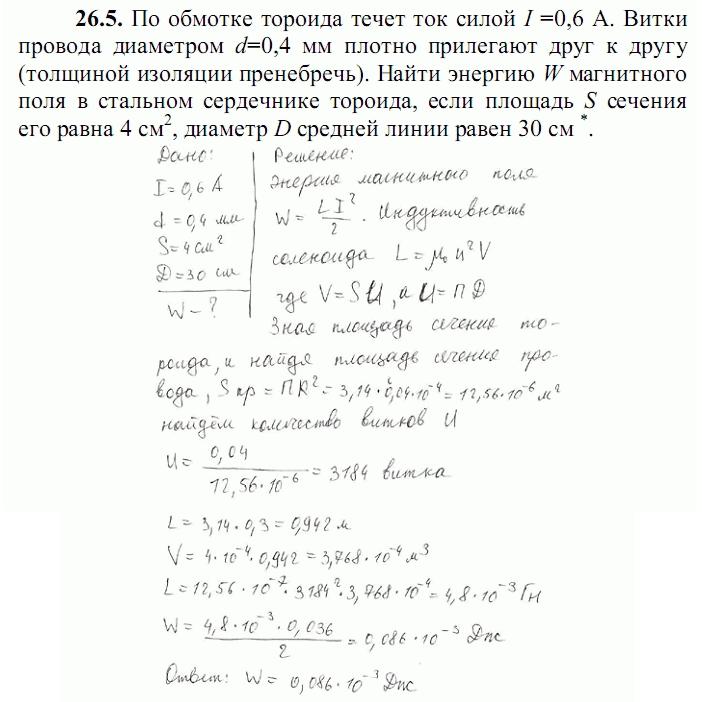 26.5. По обмотке тороида течет ток силой I =0,6 А. Витки
провода диаметром d=0,4 мм плотно прилегают друг к другу
(толщиной изоляции пренебречь). Найти энергию W магнитного
поля в стальном сердечнике тороида, если площадь S сечения
его равна 4 см², диаметр D средней линии равен 30 см *.
Дано:
I = 0,6 А
d = 0,4 мм
S = 4 см²
D = 30 см
W – ?
Решение:
Энергия магнитного поля
W = LI²/2 . Индуктивность
соленоида L = μ₀ n² V
где V = S U , а U = П D
Зная площадь сечение то-
роида, и найдя площадь сечения про-
вода, S пр = П R² = 3,14 · 0,04·10⁻⁴ = 12,56·10⁻⁶ м²
найдём количество витков U
U = 0,04 / 12,56·10⁻⁶ = 3184 витка
L = 3,14 · 0,3 = 0,942 м
V = 4·10⁻⁴ · 0,942 = 3,768·10⁻⁴ м³
L = 12,56·10⁻⁷ · 3184² · 3,768·10⁻⁴ = 4,8·10⁻³ Гн
W = 4,8·10⁻³ · 0,036 / 2 = 0,086·10⁻³ Дж
Ответ: W = 0,086·10⁻³ Дж